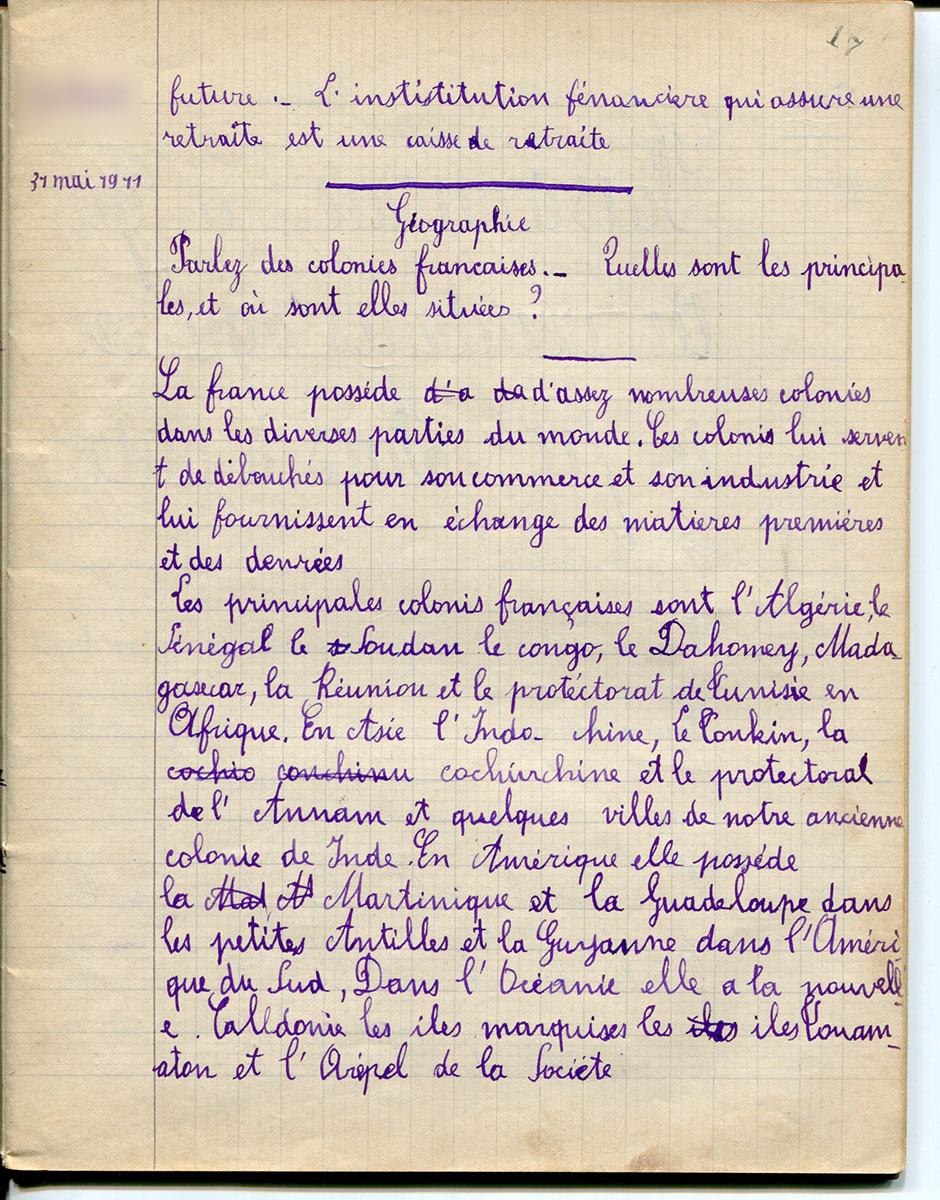 17
future._ L'instistitution fénanciere qui assure une
retraite est une caisse de retraite
31 mai 1911
Géographie
Parlez des colonies francaises._ Quelles sont les principa-
les, et où sont elles situées ?
La france posséde d'a da d'assez nombreuses colonies
dans les diverses parties du monde. Ces colonis lui serven
t de débouchés pour son commerce et son industrie et
lui fournissent en échange des matieres premiéres
et des denrées
Les principales colonis françaises sont l'Algérie, le
Sénégal le Soudan le congo, le Dahomey, Mada-
gascar, la Réunion et le protéctorat de Tunisie en
Afrique. En Asie l'Indo- chine, Le Tonkin, la
cochio conchinu cochinchine et le protectoral
de l'Annam et quelques villes de notre ancienne
colonie de Inde. En Amérique elle posséde
la Mad M Martinique et la Guadeloupe dans
les petites Antilles et la Guyanne dans l'Améri-
que du Sud, Dans l'Océanie elle a la nouvell-
e. Calédonie les iles marquises les iles iles Touam-
aton et l'Arépel de la Sociéte